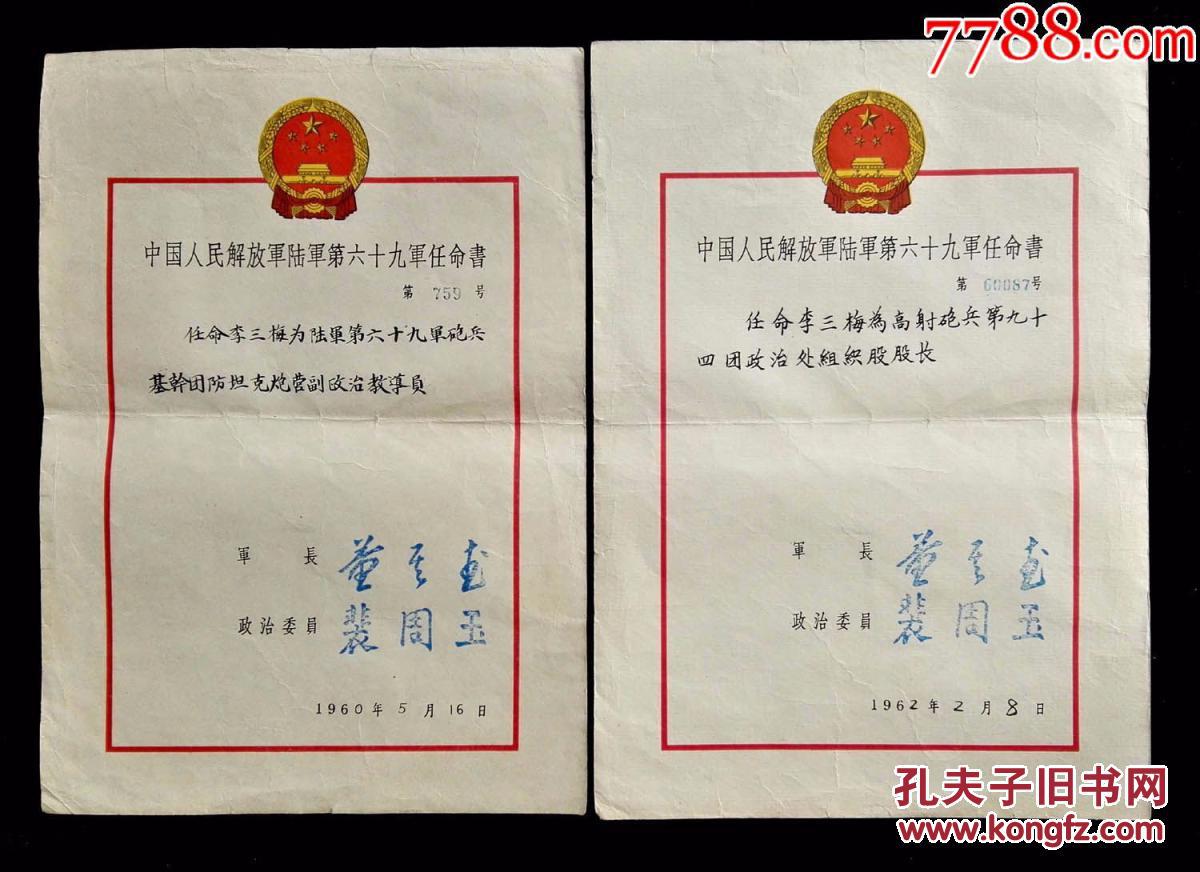 7788.com
中国人民解放軍陆軍第六十九軍任命書
第 759 号
任命李三梅为陆軍第六十九軍砲兵
基幹团防坦克炮营副政治教導員
軍 長 董天知
政治委員 裴周玉
1960年5月16日
中国人民解放軍陆軍第六十九軍任命書
第 60087号
任命李三梅為高射砲兵第九十
四团政治处組織股股长
軍 長
政治委員 裴周玉
1962年2月8日
孔夫子旧书网
www.kongfz.com